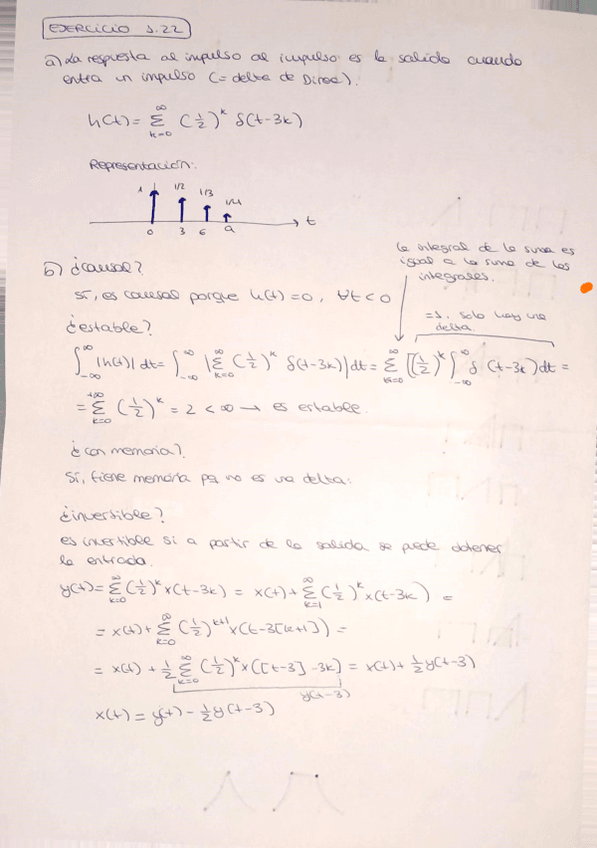 EJERCICIO 1.22
a) La respuesta al impulso al impulso es la salida cuando
entra un impulso (= delta de Dirac).
h(t) = Σ_{k=0}^{∞} (1/2)^k δ(t-3k)
Representación:
1 1/2 1/3 1/4
0 3 6 9 t
la integral de la suma es
igual a la suma de las
integrales.
b) ¿causal?
Sí, es causal porque h(t) = 0, ∀t < 0
=1. solo hay una
delta.
¿estable?
∫_{-∞}^{∞} |h(t)| dt = ∫_{-∞}^{∞} |Σ_{k=0}^{∞} (1/2)^k δ(t-3k)| dt = Σ_{k=0}^{∞} [(1/2)^k ∫_{-∞}^{∞} δ(t-3k) dt =
= Σ_{k=0}^{+∞} (1/2)^k = 2 < ∞ → es estable.
¿con memoria?
Sí, tiene memoria pq no es una delta.
¿invertible?
es invertible si a partir de la salida se puede obtener
la entrada.
y(t) = Σ_{k=0}^{∞} (1/2)^k x(t-3k) = x(t) + Σ_{k=1}^{∞} (1/2)^k x(t-3k) =
= x(t) + Σ_{k=0}^{∞} (1/2)^{k+1} x(t-3[k+1]) =
= x(t) + 1/2 Σ_{k=0}^{∞} (1/2)^k x([t-3] -3k] = x(t) + 1/2 y(t-3)
y(t-3)
x(t) = y(t) - 1/2 y(t-3)